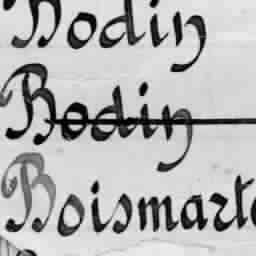 Bodin
Bodin
Boismart